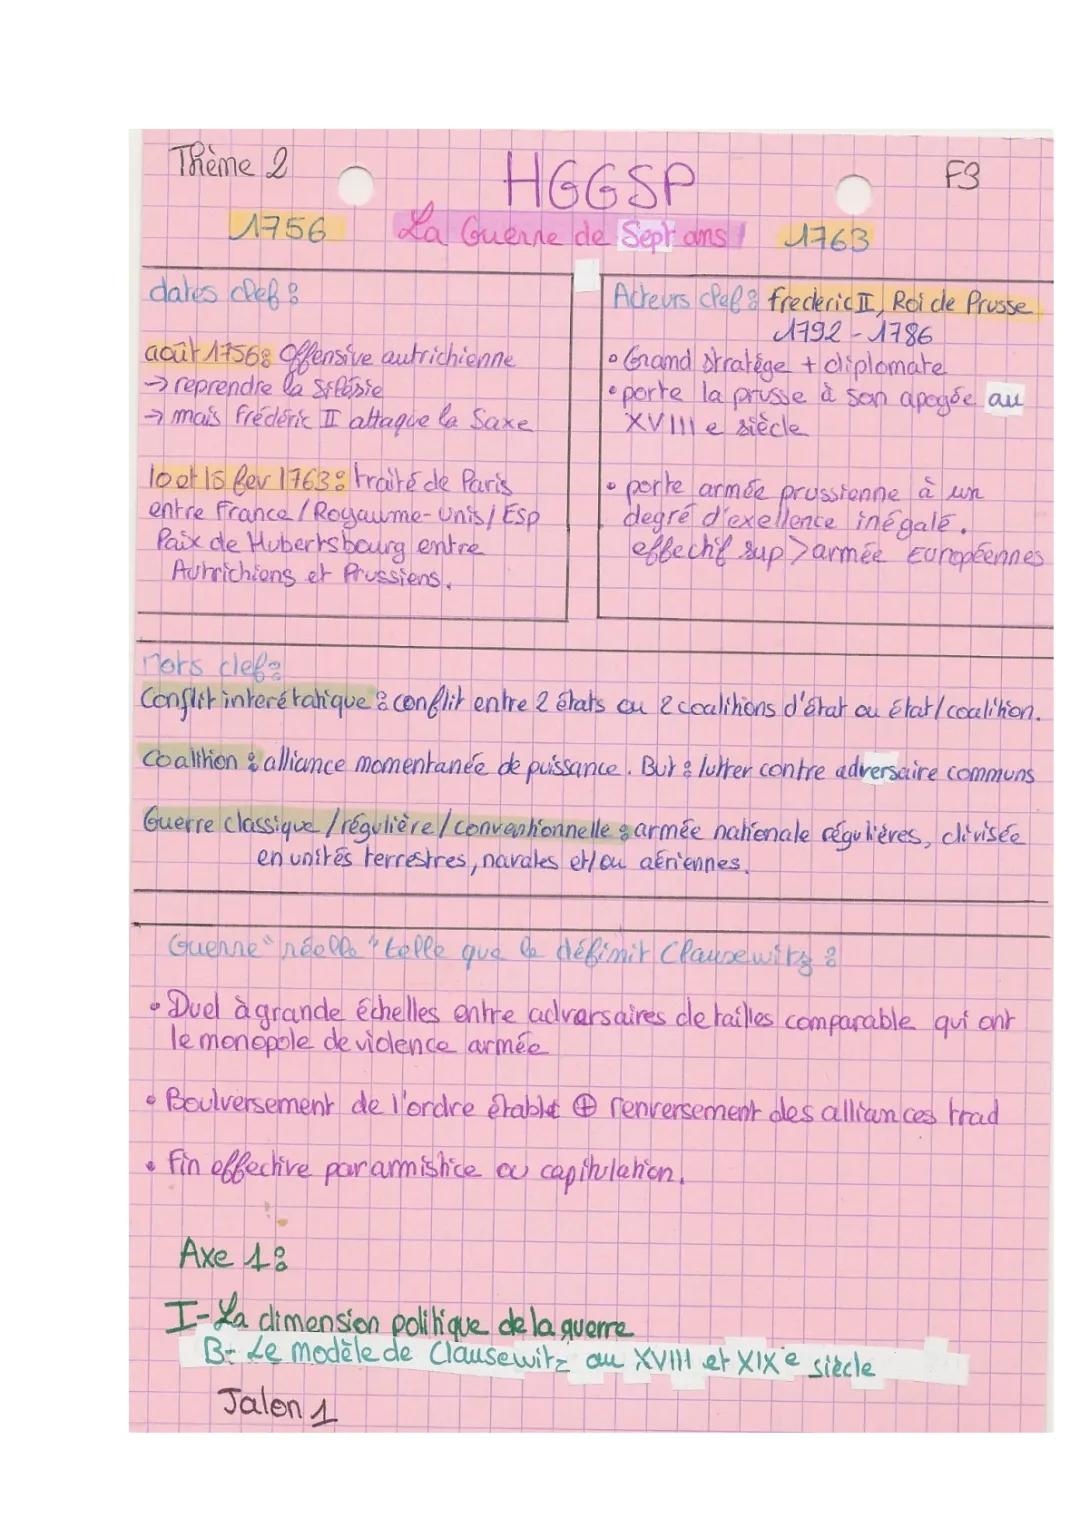 Thème 2
HGGSP
F3
1756
La Guerre de Sept ans
1763
dates clef :
août 1756 : Offensive autrichienne
→ reprendre la Silésie
→ mais Frédéric II attaque la Saxe
10 et 15 fev 1763 : traité de Paris
entre France / Royaume-Unis / Esp
Paix de Hubertsbourg entre
Autrichiens et Prussiens.
Acteurs clef : frederic II, Roi de Prusse
1792 - 1786
• Grand stratège + diplomate
• porte la prusse à son apogée au
XVIII e siècle
• porte armée prussienne à un
degré d'exellence inégalé.
effectif sup > armée Européennes
mots clef :
Conflit interétatique : conflit entre 2 états ou 2 coalitions d'état ou état/coalition.
Coalition : alliance momentanée de puissance. But : lutter contre adversaire communs
Guerre classique / régulière / conventionnelle : armée nationale régulières, divisée
en unités terrestres, navales et/ou aériennes.
Guerre "réelle" telle que le définit Clausewitz :
• Duel à grande échelles entre adversaires de tailles comparable qui ont
le monopole de violence armée
• Boulversement de l'ordre établit ⊕ renversement des alliances trad
• Fin effective par armistice ou capitulation.
Axe 1 :
I- La dimension politique de la guerre
B- Le modèle de Clausewitz au XVIII et XIXe siècle
Jalon 1